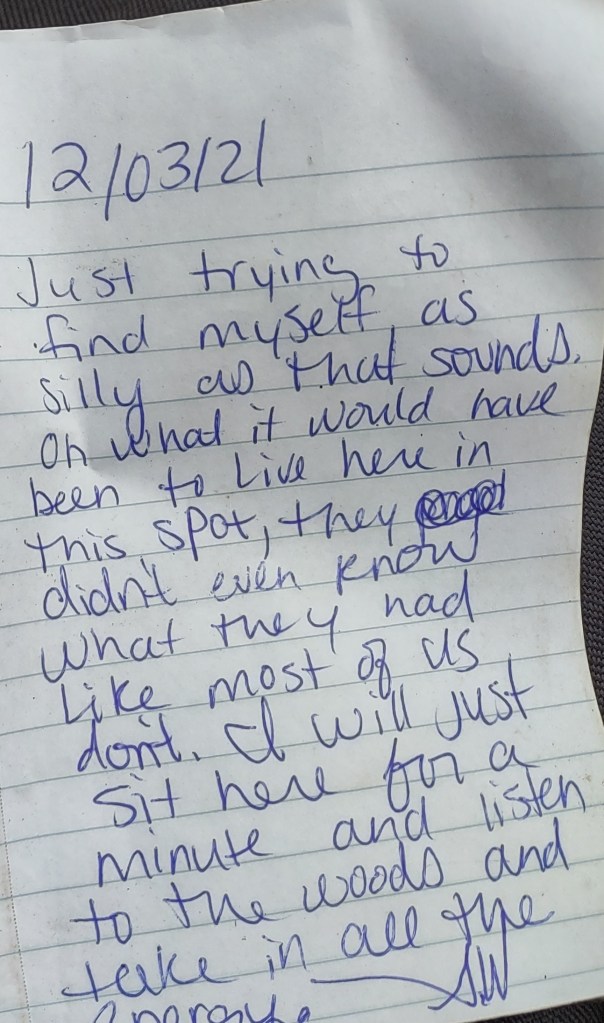 12/03/21
Just trying to
find myself, as
silly as that sounds.
Oh what it would have
been to Live here in
this spot, they
didn't even know
what they had
Like most of us
don't. I will just
sit here for a
minute and listen
to the woods and
take in all the
energy. SW